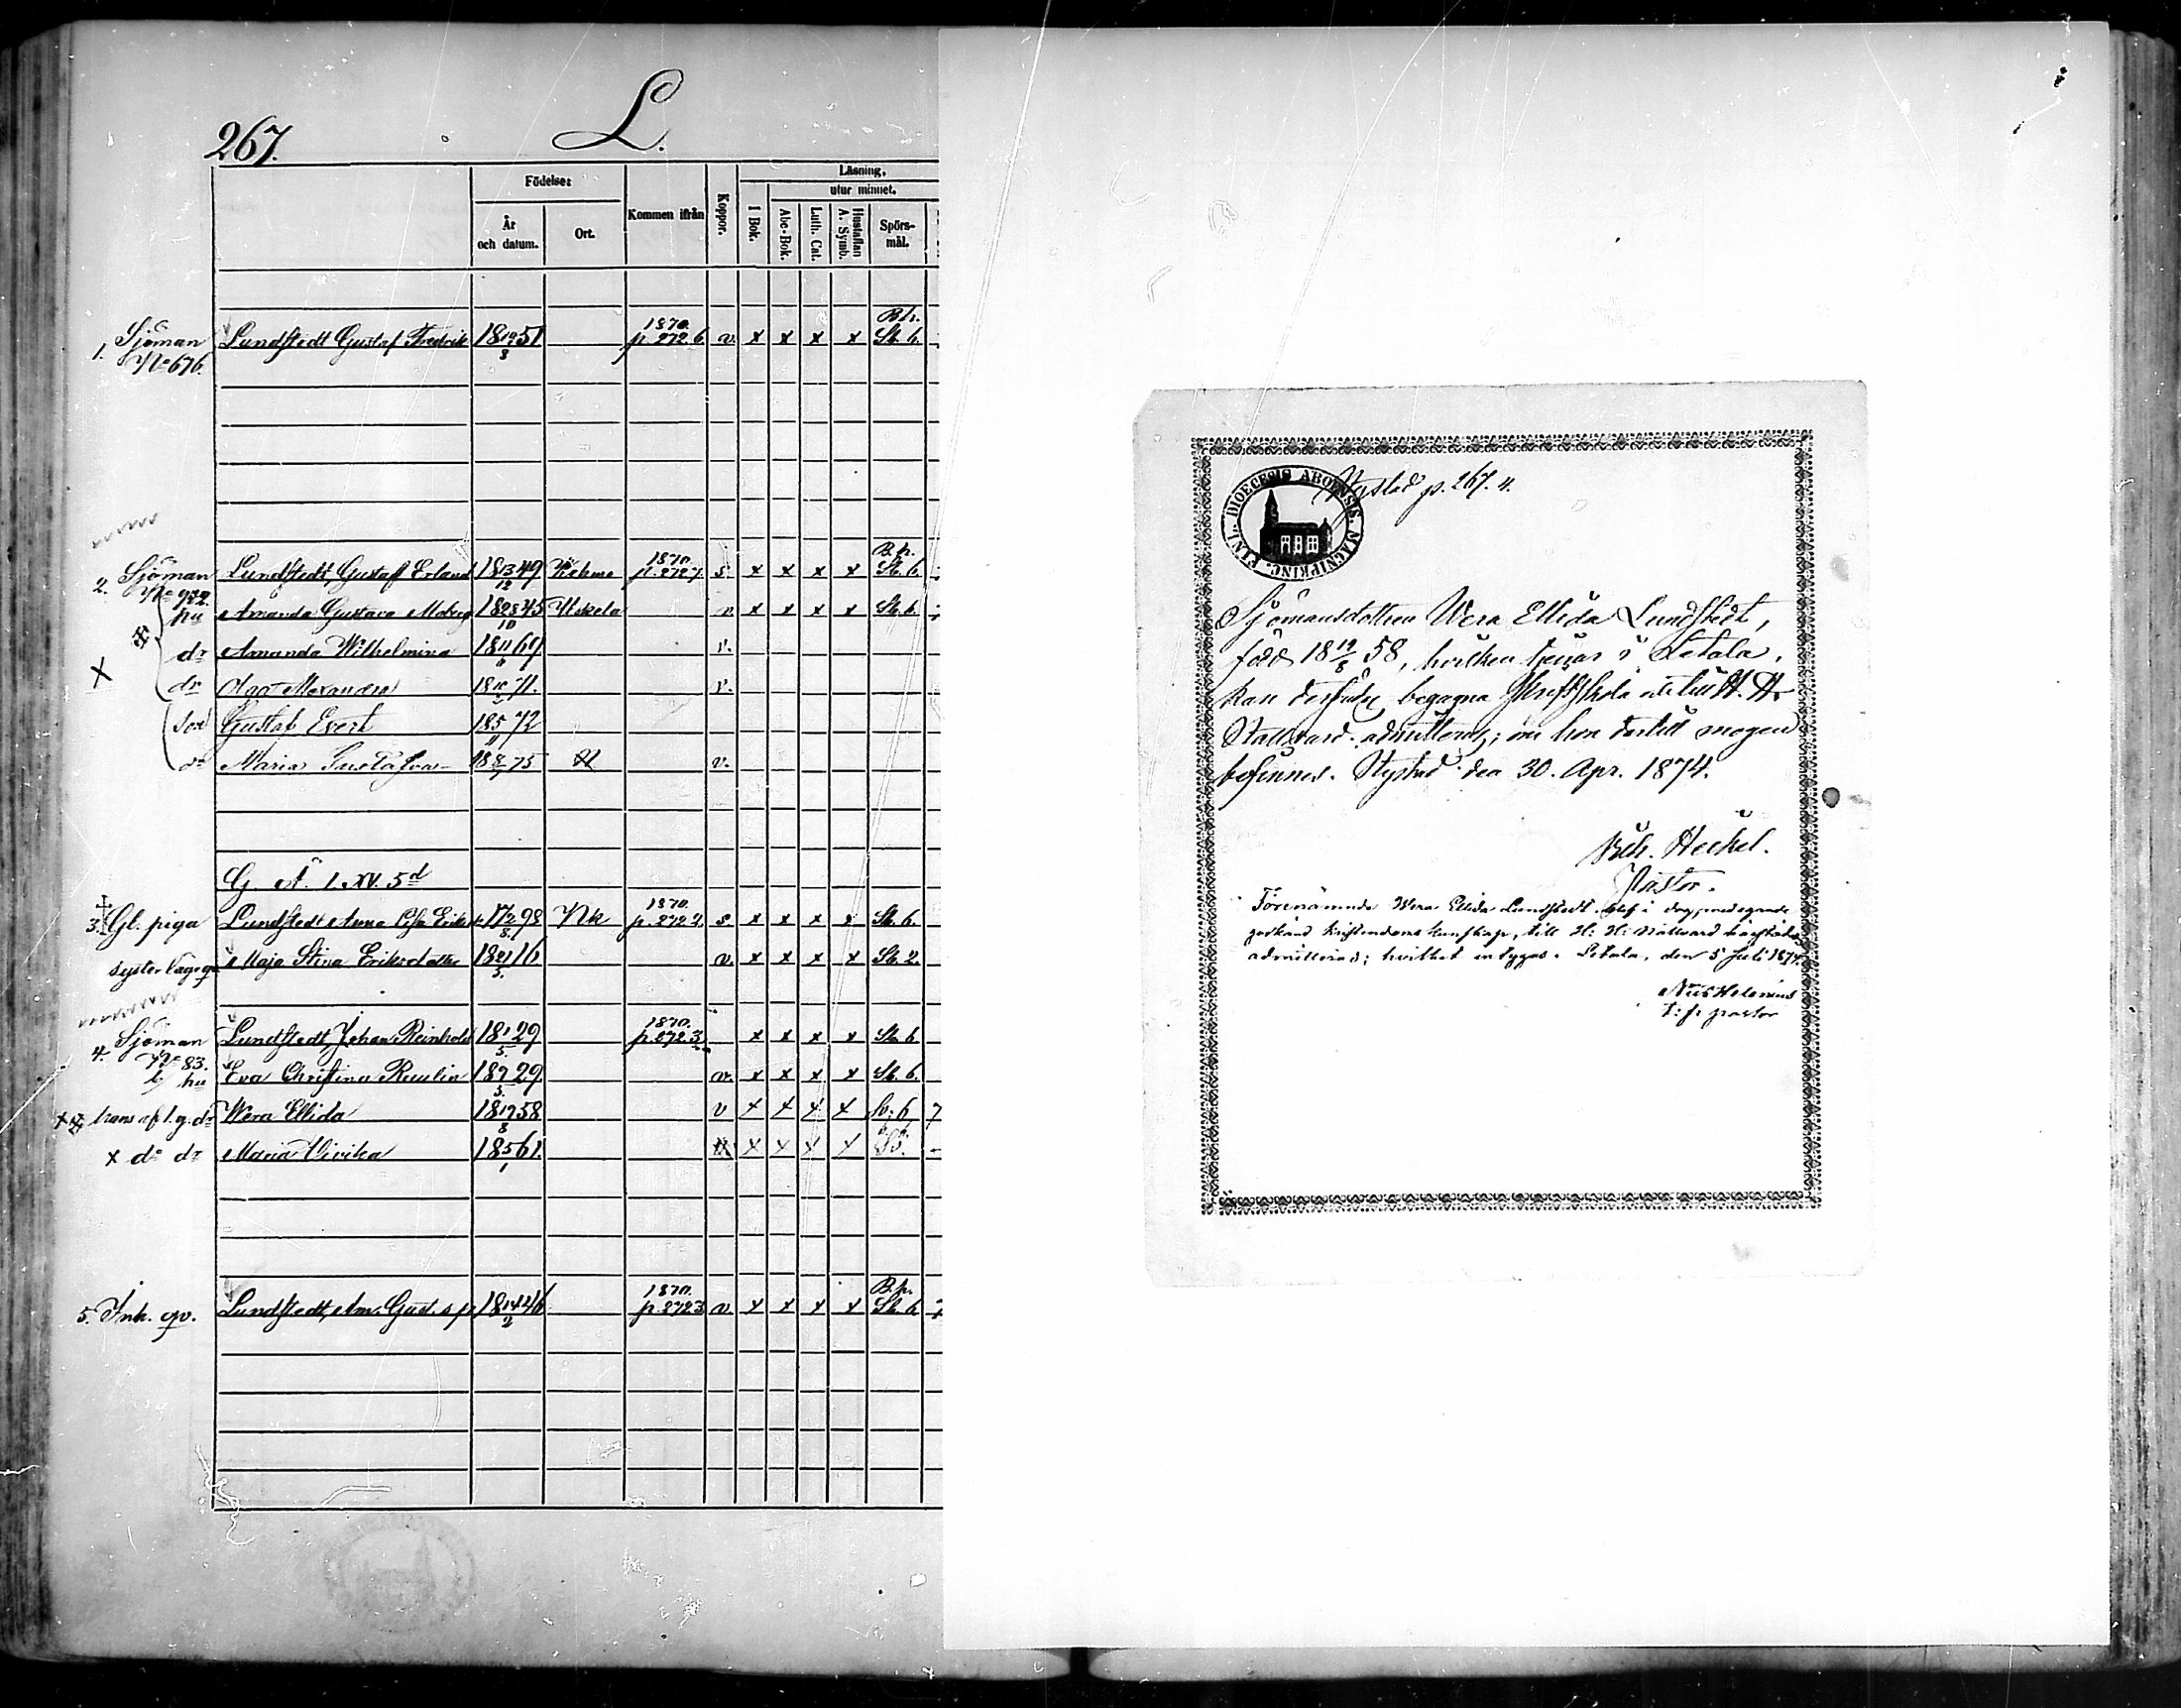 267.
L.
Födelse:
Läsning,
utur minnet.
År och datum.
Ort.
Kommen ifrån
Koppor.
I Bok.
Abc-Bok.
Luth. Cat.
Hustaflan A. Symb.
Spörs-mål.
1. Sjöman No 676. Lundstedt Gustaf Fredrik 18 19/8 51 1870. p. 272.6 v. x x x x B.h. St. 6.
2. Sjöman No 972. Lundstedt, Gustaf Erland 18 13/12 49 1870. p. 272.7 s. x x x x B.h. St. 6.
hu Amanda Gustava Moberg 18 28/10 45 Uskela v x x x x St. 6
dr Amanda Wilhelmina 18 11/6 69 v.
dr Olga Alexandra 71. v.
son Gustaf Evert 18 5/11 72
dr Maria Gustafva 75 v.
G. A. 1. XV. 5d
3. Gl. piga Lundstedt Anna Lisa Eriks 17 2/8 98 Nk 1870. p. 272.2. s x x x x St. 6.
syster Maja Stina Eriksdotter 18 21/5 16 v. x x x x St. 2.
4. Sjöman No 83. Lundstedt, Johan Reinhold 18 1/5 29 1870. p. 272.3 x x x x St. 6
hu Eva Christina Rewlin 18 9/5 29 v. x x x x St. 6.
dr Wera Ellida 18 19/8 58 v x x x x 6 7
x do dr Maria Vivika 18 5/1 61. x x x x
5. Inh. qv. Lundstedt, Am. Gust. 18 14/2 46 1870. p. 272.3 v x x x x B.h. St. 6
DIOECESIS ABOENSIS. MAGNIPRINC. FINL.
Nystad p. 267. 4.
Sjömansdottren Wera Ellida Lundstedt,
född 18 19/8 58, hvilken tjenar i Letala,
kan derstädes begagna Skriftskola och till H. H.
Nattvard admitteras; om hon dertill mogen
befinnes. Nystad den 30. Apr. 1874.
Heckel.
Pastor.
Förenämnde Wera Ellida Lundstedt blef i dag, med egande
godkänd kristendoms kunskap, till H: H: Nattvard
admitterad; hvilket intygas. Letala, den 5 Juli 1874.
Helenius
t: f: pastor